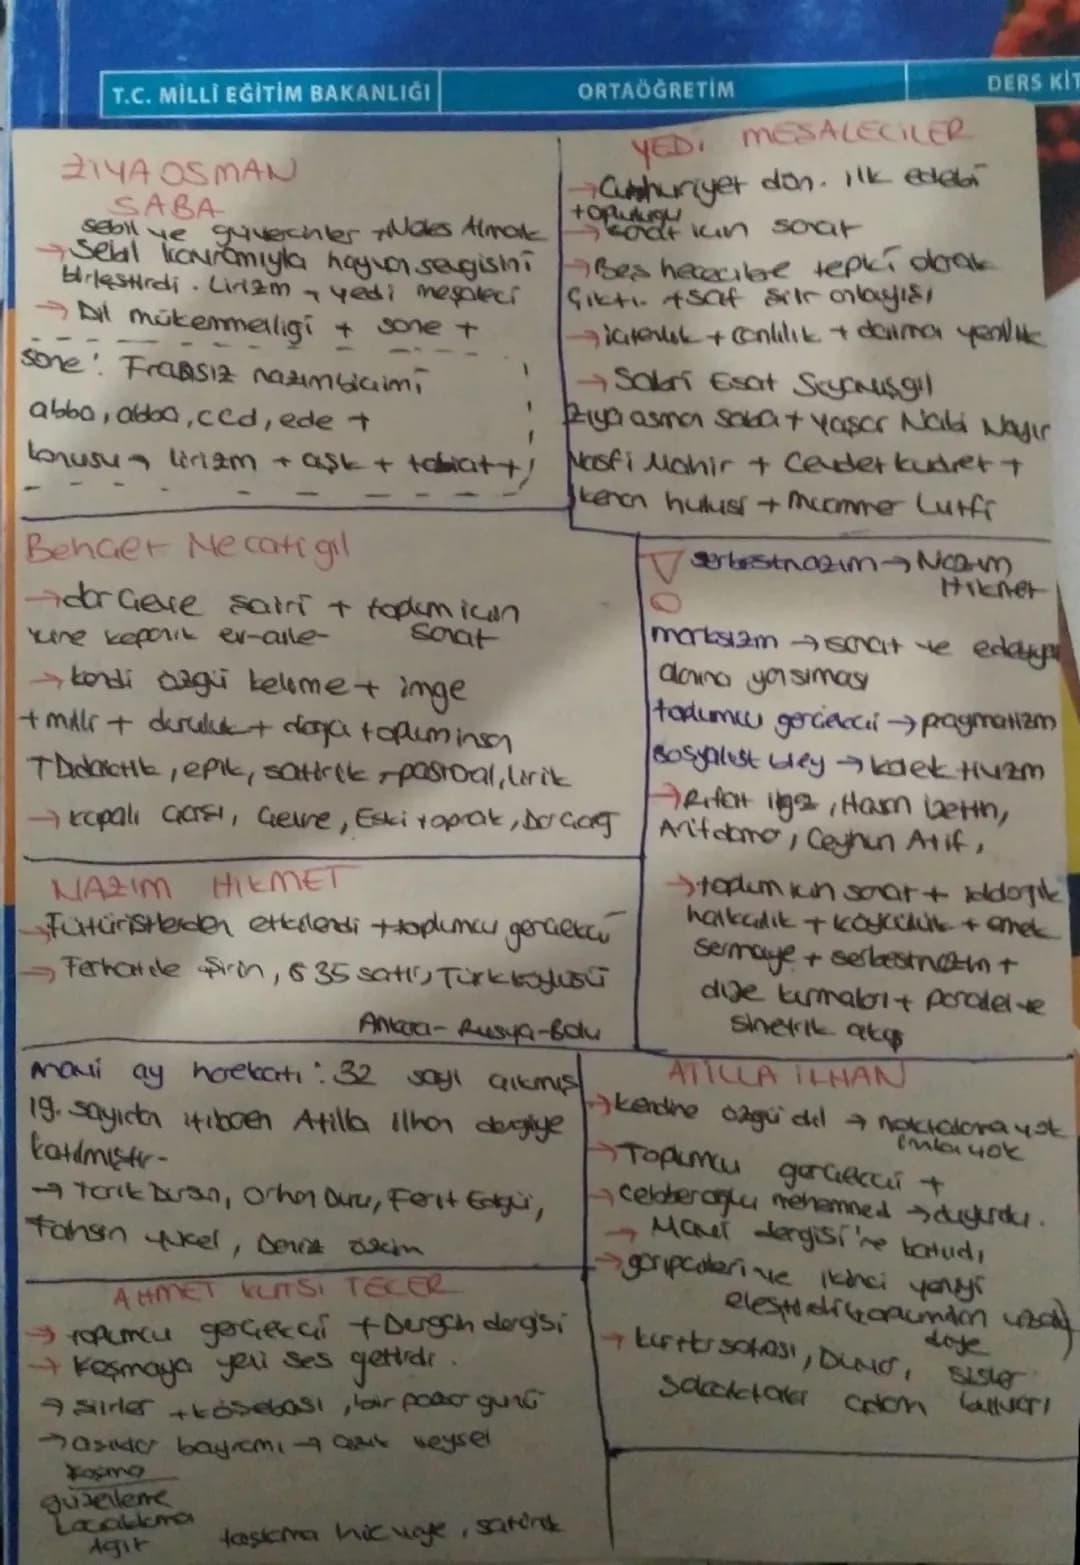 T.C. MİLLÎ EĞİTİM BAKANLIĞI
ORTAÖĞRETİM
DERS KİT
ZIYA OSMAN
SABA
sebil ve güvercinler Nefes Almak
→ Sebil kavramıyla hayvan sevgisini
birleştirdi. Lirizm → yedi meşaleci
→ Dil mükemmelligi + sone +
sone: Fransız nazım biçimi
abba, abba, ccd, ede +
konusu → lirizm + aşk + tabiat +
YEDİ MESALECILER
→ Cumhuriyet dön. ilk edebî
topluluğu
→ sanat için sanat
→ Beş hececilere tepki olarak
çıktı. + saf şiir anlayışı
→ içtenlik + canlılık + daima yenilik
→ Sabri Esat Siyavuşgil
Ziya osman Saba + Yaşar Nabi Nayır
Vasfi Mahir + Cevdet kudret +
kenan hulusi + Muammer Lutfi
Behçet Necatigil
→ dar Gelire şairi + toplum için
sanat
ev-aile-
→ kendi özgü kelime + imge
+ milli + duruluk + doğa toplum insan
+ Didaktik, epik, satirik, pastoral, lirik
→ kapalı Çarşı, Çevre, Eski toprak, Dar Çağ
serbest nazım → Nazım
Hikmet
marksizm → sanat ve edebiyat
alanına yansıması
toplumcu gerçekçi → pragmatizm
Sosyalist birey → kolektivizm
→ Rıfat ılgaz, Hasan İzzettin,
Arif damar, Ceyhun Atıf,
→ toplum için sanat + ideolojik
halkçılık + köycülük + emek
sermaye + serbest nazım +
dize kırmaları + paralel ve
simetrik akış
NAZIM HIKMET
→ Fütüristlerden etkilendi + toplumcu gerçekçi
→ Ferhat ile Şirin, 835 satır, Türk köylüsü
Ankara - Rusya - Bolu
mavi ay harekatı: 32 sayı çıkmış
19. sayıdan itibaren Atilla ilhan dergiye
katılmıştır-
→ Tarık Dursun, Orhan Duru, Ferit Edgü,
Tahsin yücel, Demir özlü
ATILLA İLHAN
→ kendine özgü dil → noktalama yok
imla yok
→ Toplumcu gerçekçi +
→ Cebberoğlu mehemmed → duyurdu.
→ Mavi dergisi'ne katıldı
→ garipçileri ve ikinci yeniyi
eleştirdi (toplumdan uzak)
diye
→ kurtlar sofrası, Duvar, Sisler
Sokaktaki adam bulvarı
AHMET KUTSI TECER
→ toplumcu gerçekçi + Dergah dergisi
→ Koşmaya yeni ses getirdi.
→ şiirler + köşebaşı, bir pazar günü
→ aşıklar bayramı → aşık veysel
Koşma
güzelleme
koçaklama
Ağıt
taşlama hicviye, satirik